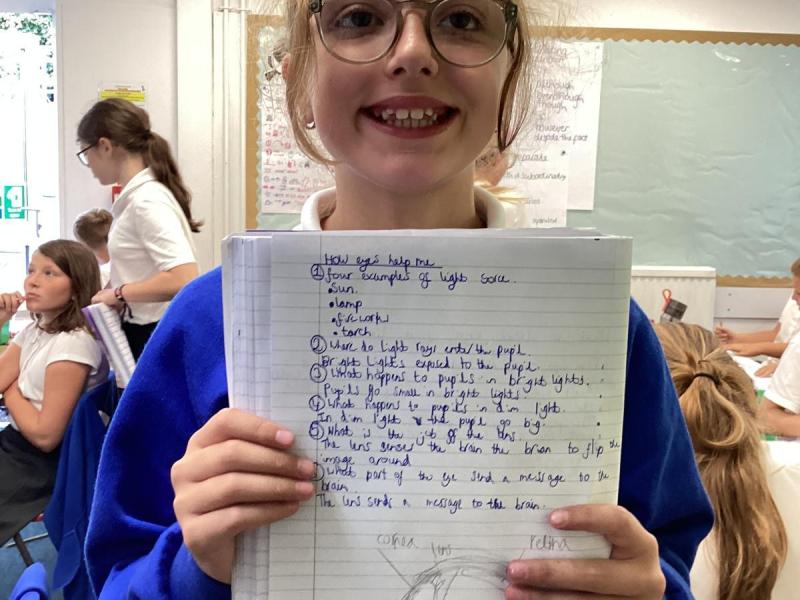 How eyes help me
① four examples of light sorce.
•Sun.
•lamp
•firework
•torch
② Where do light rays enter the pupil.
Bright lights exposed to the pupil.
③ What happens to pupils in bright lights.
Pupils go small in bright lights
④ What happens to pupils in dim light.
In dim light the pupil go big.
⑤ What is the job of the lens.
The lens sense the brain the brian to flip the
image around
What part of the eye send a message to the
brain.
The lens sends a message to the brain.
cornea lens retina
although
even though
though
however
despite the fact
subordinating